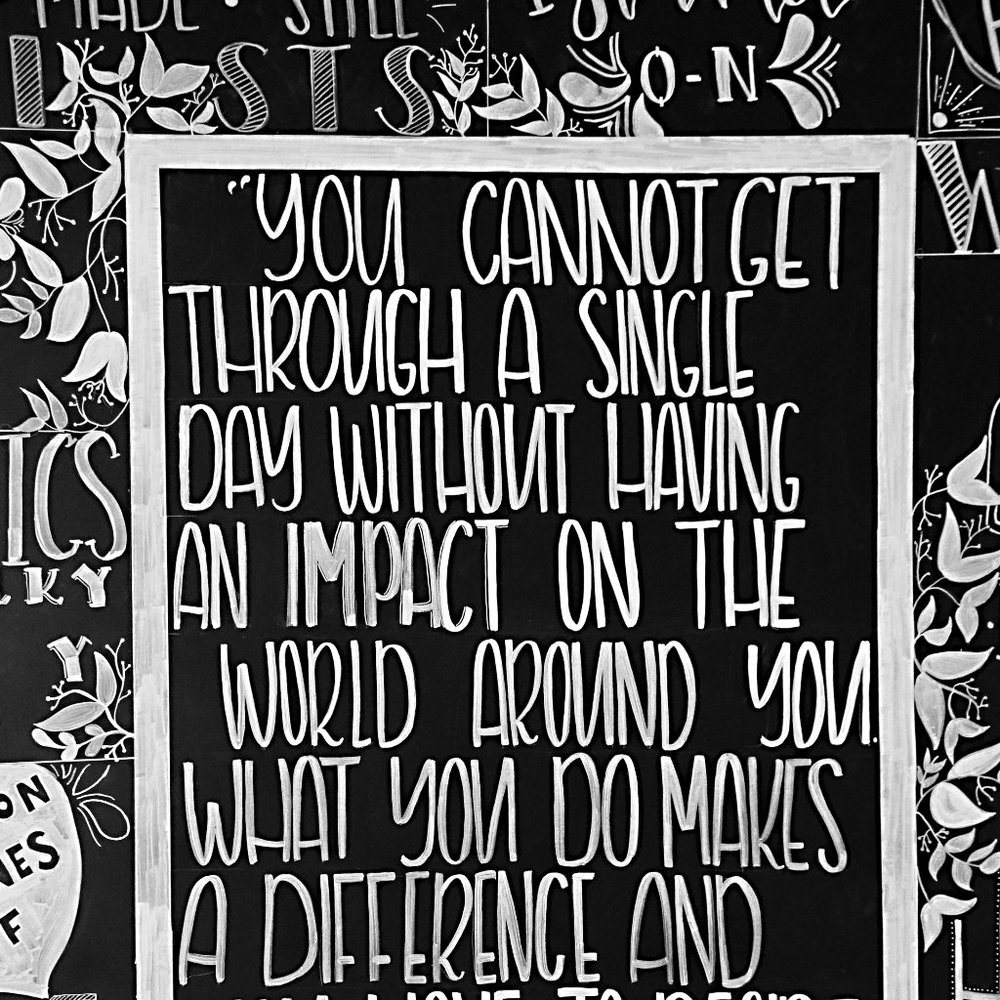 MADE · STILL
STS
O-N
"YOU CANNOT GET
THROUGH A SINGLE
DAY WITHOUT HAVING
AN IMPACT ON THE
WORLD AROUND YOU.
WHAT YOU DO MAKES
A DIFFERENCE AND
ICS
KY
Y
ON
F